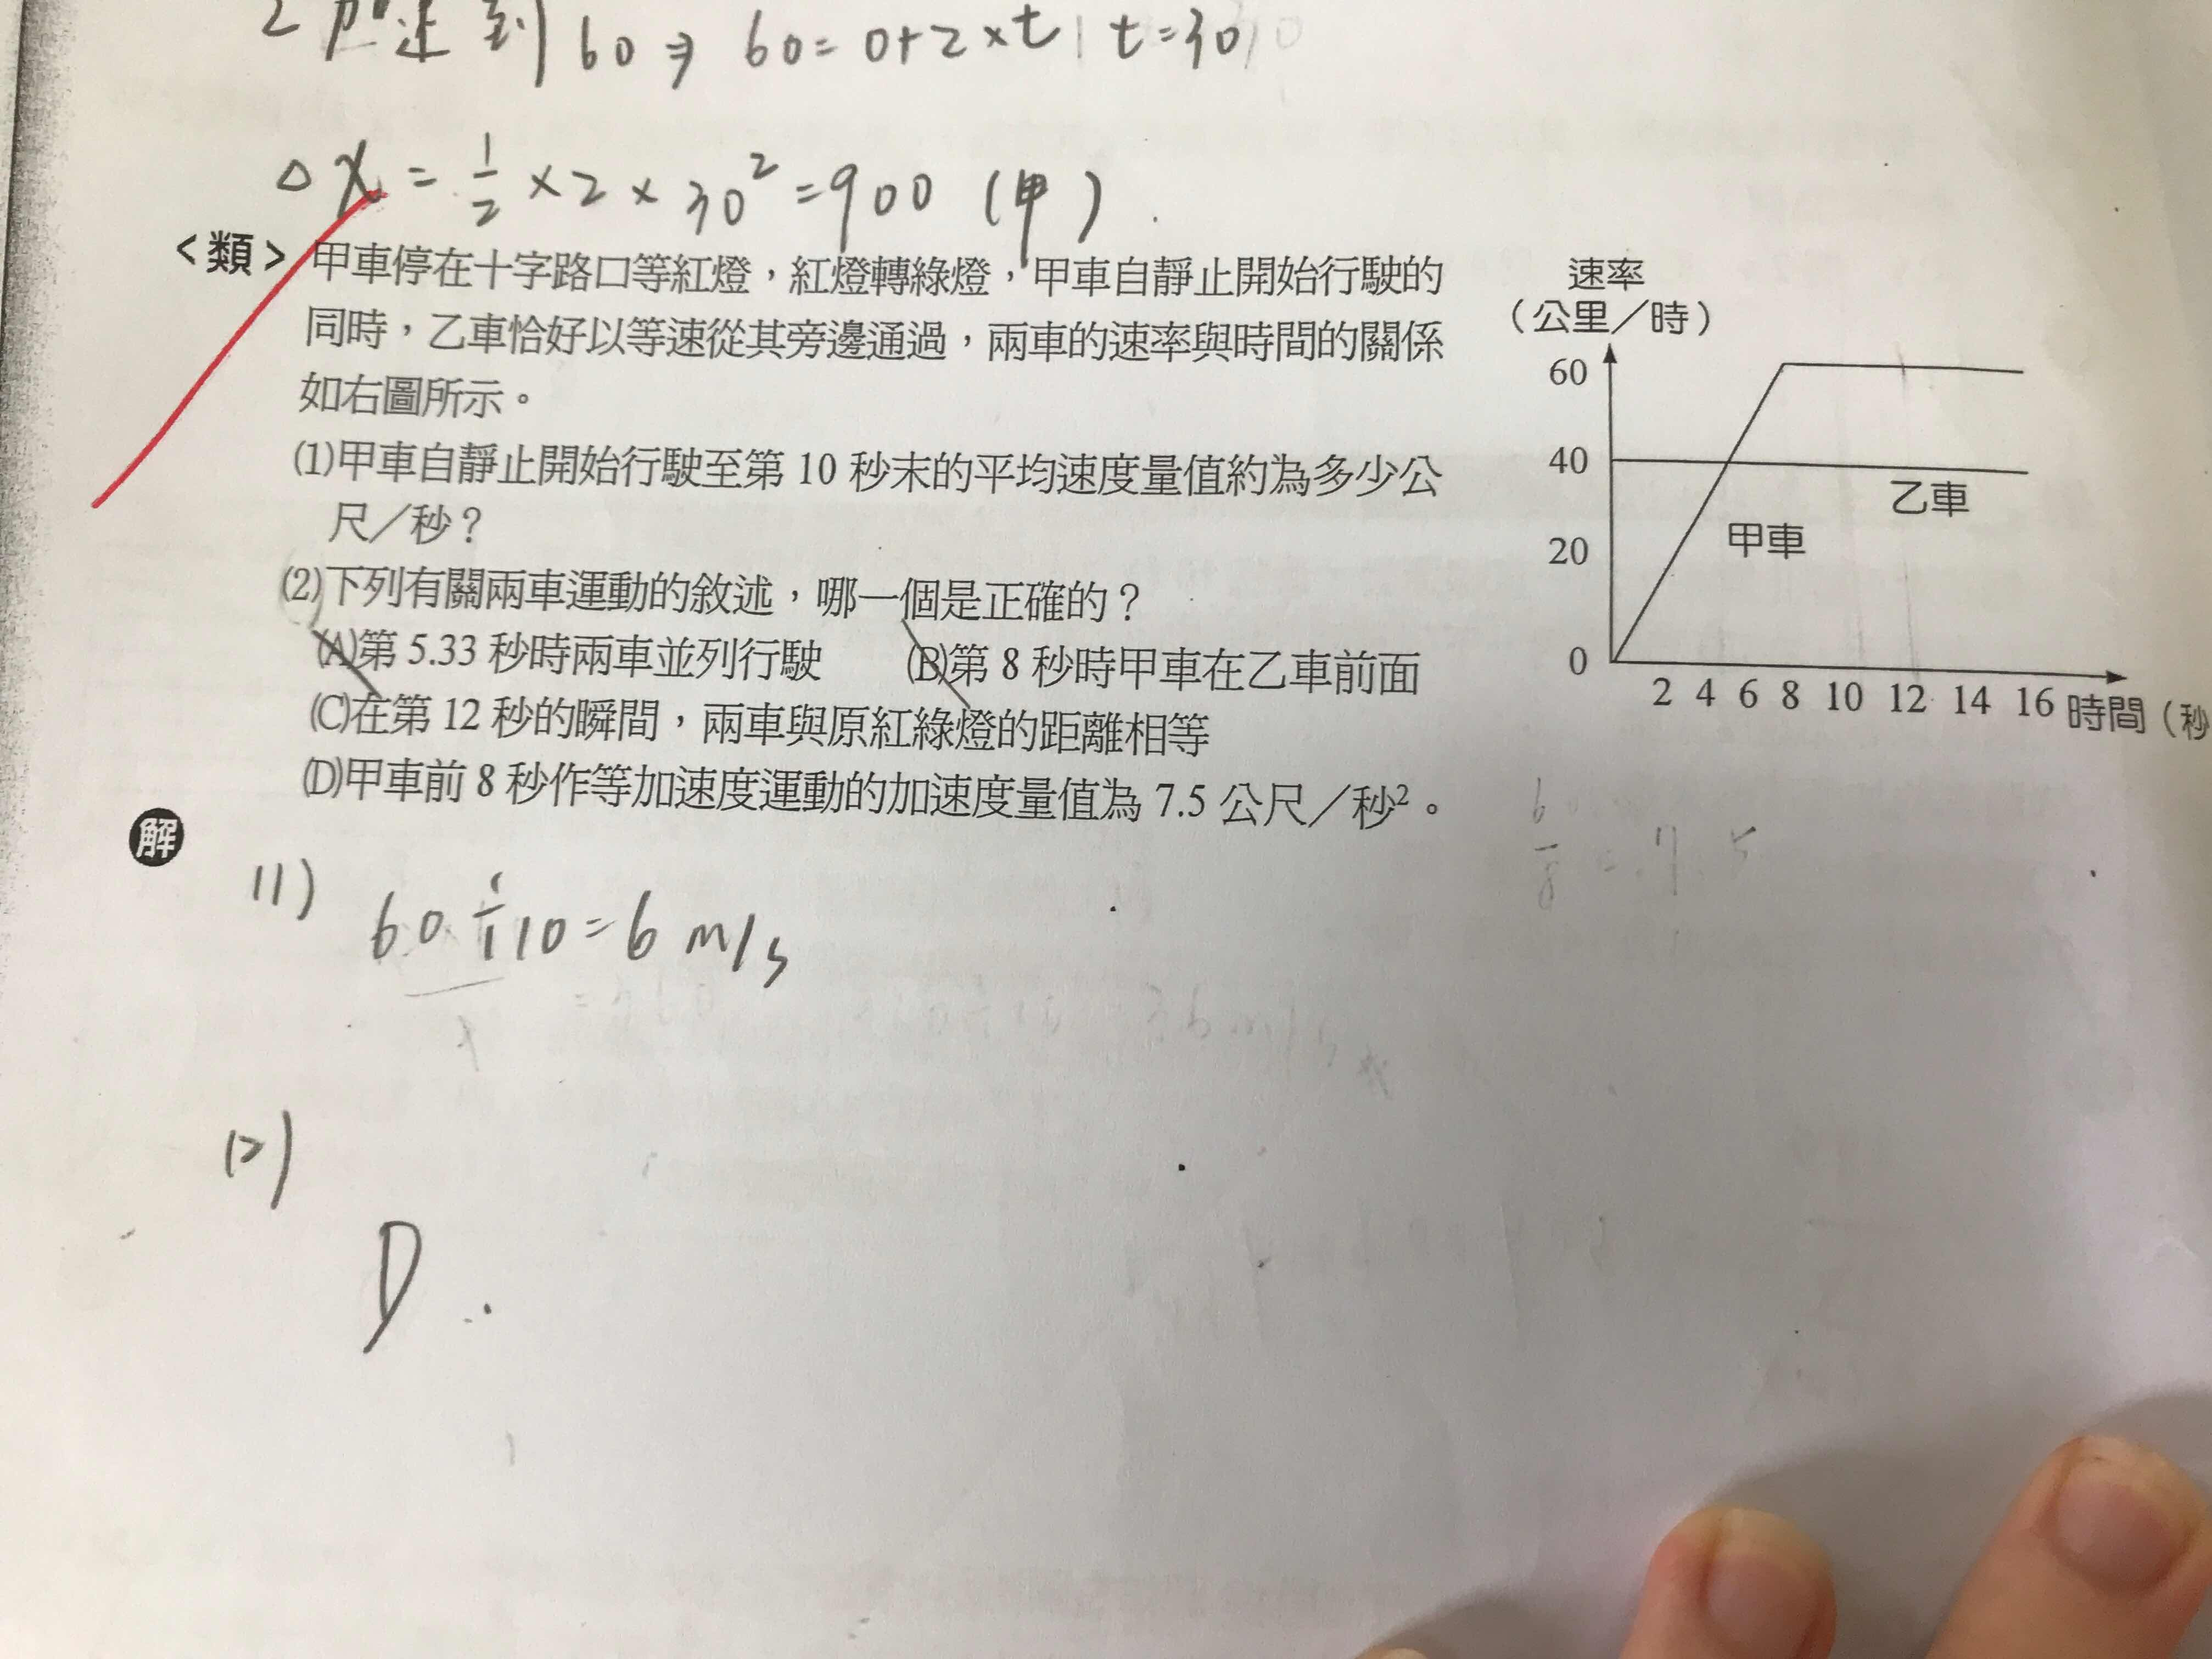 2 加速到 60 ⇒ 60 = 0+2×t, t=30
△x = 1/2 × 2 × 30² = 900 (甲)
<類> 甲車停在十字路口等紅燈，紅燈轉綠燈，甲車自靜止開始行駛的
同時，乙車恰好以等速從其旁邊通過，兩車的速率與時間的關係
如右圖所示。
(1)甲車自靜止開始行駛至第 10 秒末的平均速度量值約為多少公
尺／秒？
(2)下列有關兩車運動的敘述，哪一個是正確的？
(A)第 5.33 秒時兩車並列行駛 (B)第 8 秒時甲車在乙車前面
(C)在第 12 秒的瞬間，兩車與原紅綠燈的距離相等
(D)甲車前 8 秒作等加速度運動的加速度量值為 7.5 公尺／秒²。
速率
（公里／時）
60
40
20
0
乙車
甲車
2 4 6 8 10 12 14 16 時間（秒
解
(1) 60 ÷ 10 = 6 m/s
60/8 = 7.5
(2)
D